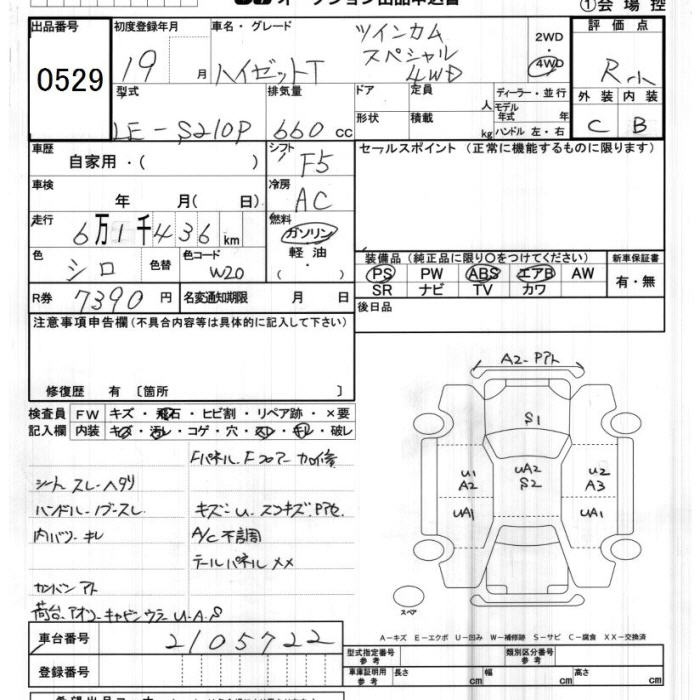 オークション出品申込書 ①会場控
出品番号 初度登録年月 車名・グレード 2WD ・ 4WD 評価点
0529 19 月 ハイゼットT ツインカム スペシャル 4WD
型式 排気量 ドア 定員 人 ディーラー・並行 外装 内装
LE-S210P 660 cc 形状 積載 kg モデル年式 年 ハンドル 左・右 C B
車歴 自家用・( ) シフト F5 セールスポイント (正常に機能するものに限ります)
車検 年 月( 日) 冷房 AC
走行 6万1千436 km 燃料 ガソリン 軽油 ・( )
色 シロ 色替 色コード W20
装備品 (純正品に限り〇をつけてください) 新車保証書
PS PW ABS エアB AW 有・無
SR ナビ TV カワ
R券 7390円 名変通知期限 月 日 後日品
注意事項申告欄(不具合内容等は具体的に記入して下さい)
修復歴 有 [箇所 ]
検査員 FW キズ・飛石・ヒビ割・リペア跡・×要
記入欄 内装 キズ・汚レ・コゲ・穴・スレ・キレ・破レ
Fパネル、Fコアー加修
シート スレ・ヘタリ
ハンドル・ノブ・スレ
内バリ・キレ
A/C不調
テールパネル××
カンバンアト
荷台、アオリ・キャビンウラ U・A・S
A2・Pアト
S1
U1 A2
UA2 S2
U2 A3
UA1
UA1
スペア
A-キズ E-エクボ U-凹み W-補修跡 S-サビ C-腐食 XX-交換済
車台番号 2105722
登録番号
型式指定番号 参考 類別区分番号 参考
車庫証明用 参考 長さ cm 幅 cm 高さ cm